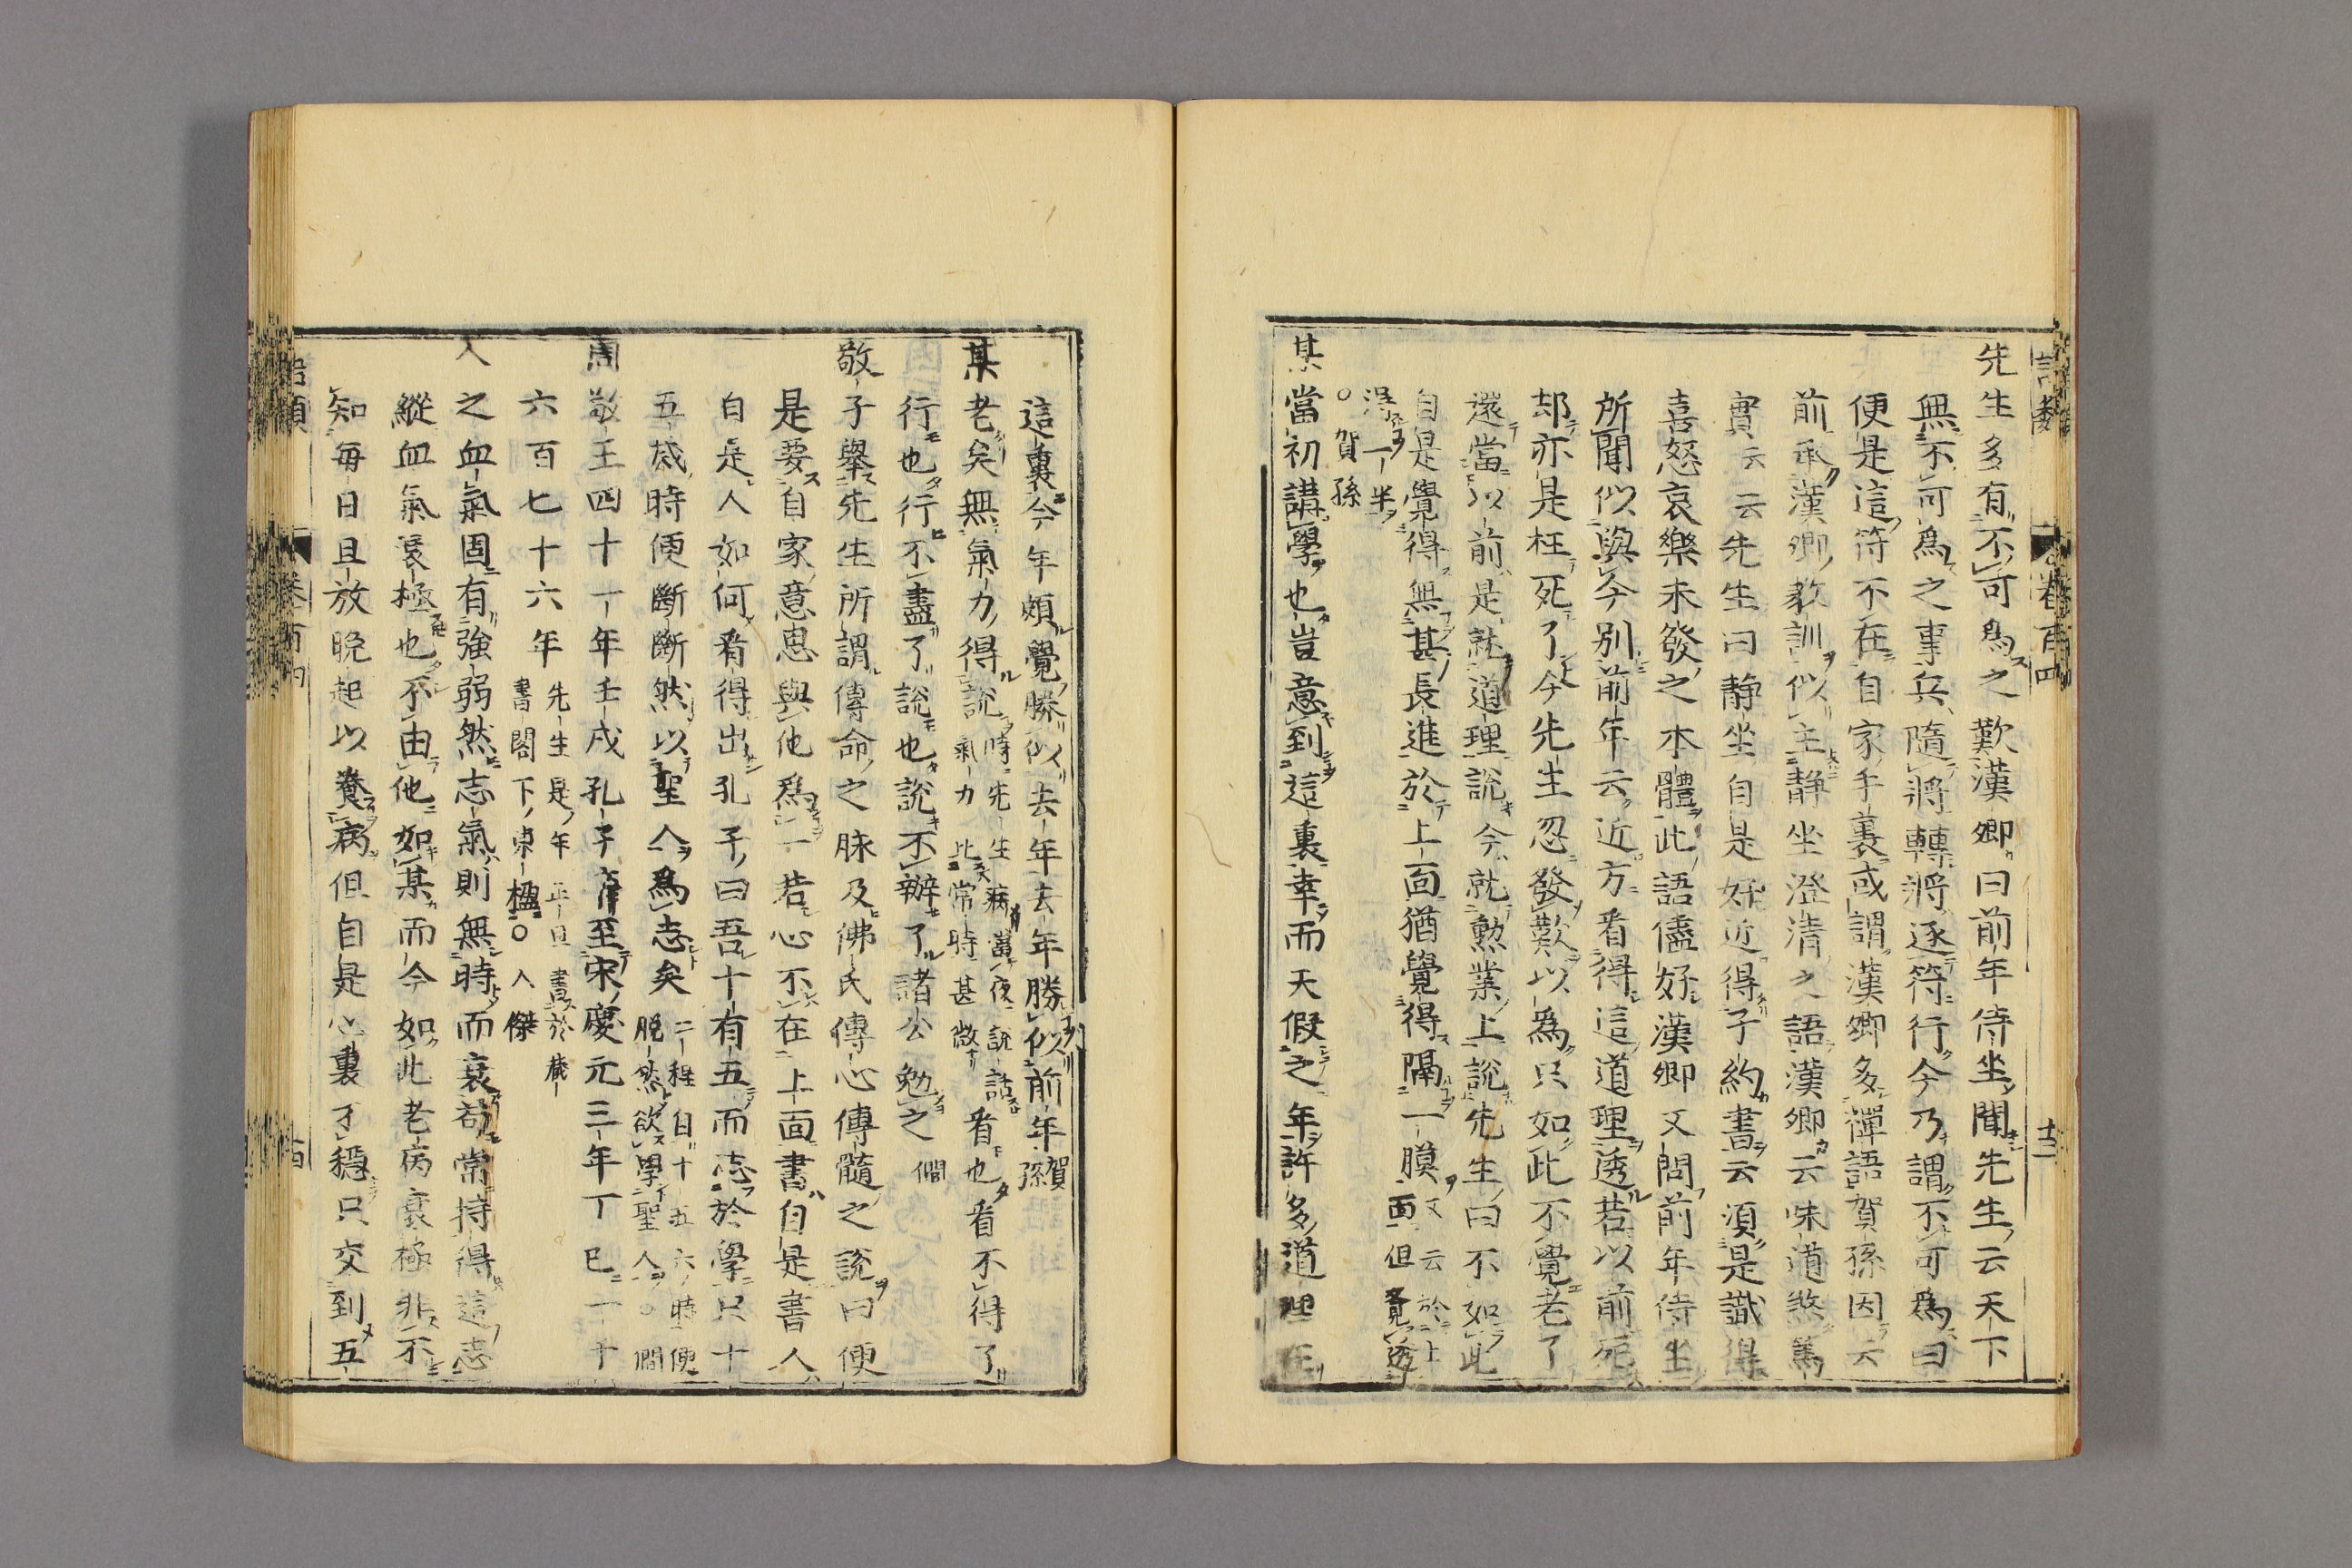 語類
卷百四
十三
先生多有不可爲之歎漢卿曰前年侍坐聞先生云天下
無不可爲之事兵隨將轉將逐符行今乃謂不可爲曰
便是這符不在自家手裏或謂漢卿多禪語賀孫因云
前承漢卿教訓似主靜坐澄清之語漢卿云味道煞篤
實云云先生曰靜坐自是好近得子約書云須是識得
喜怒哀樂未發之本體此語儘好漢卿又問前年侍坐
所聞似與今別前年云近方看得這道理透若以前死
却亦是枉死了今先生忽發歎以爲只如此不覺老了
還當以前是就道理說今就勲業上說先生曰不如此
自是覺得無甚長進於上面猶覺得隔一膜又云於上
面但覺透
得一半
○賀孫
某當初講學也豈意到這裏幸而天假之年許多道理在
這裏今年頗覺勝似去年去年勝似前年賀孫
某老矣無氣力得說時先生病當夜說話
氣力比常時甚微看也看不得了
行也行不盡了說也說不辦了諸公勉之僩
敬子舉先生所謂傳命之脉及佛氏傳心傳髓之說曰便
是要自家意思與他爲一若心不在上面書自是書人
自是人如何看得出孔子曰吾十有五而志於學只十
五歲時便斷斷然以聖人爲志矣二程自十五六時便
脫然欲學聖人○僩
周敬王四十一年壬戌孔子卒至宋慶元三年丁巳一千
六百七十六年先生是年正旦書於藏
書閣下東楹○人傑
人之血氣固有強弱然志氣則無時而衰苟常持得這志
縱血氣衰極也不由他如某而今如此老病衰極非不
知每日且放晚起以養病但自是心裏不穩只交到五
語類
卷百四
十四